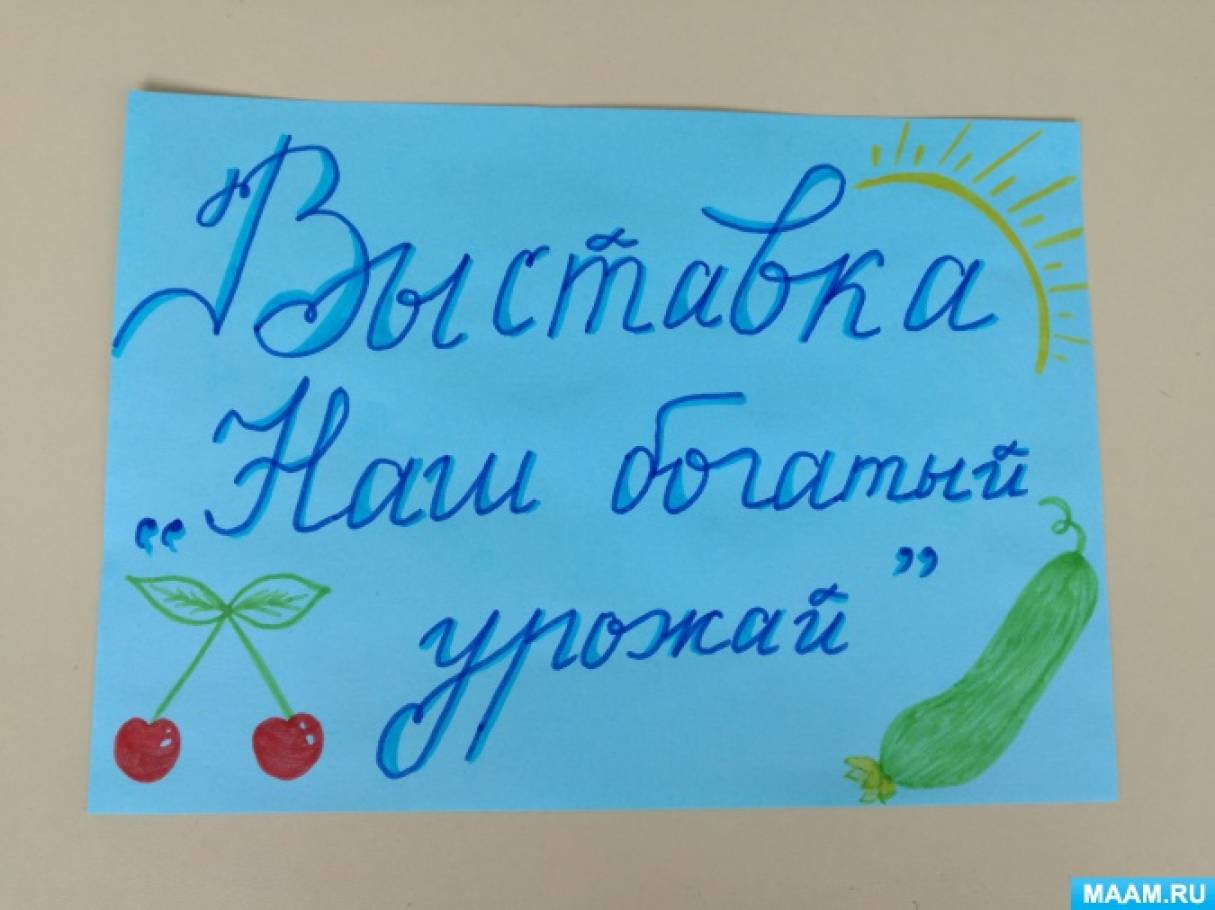 Выставка
„Наш богатый
урожай”
MAAM.RU